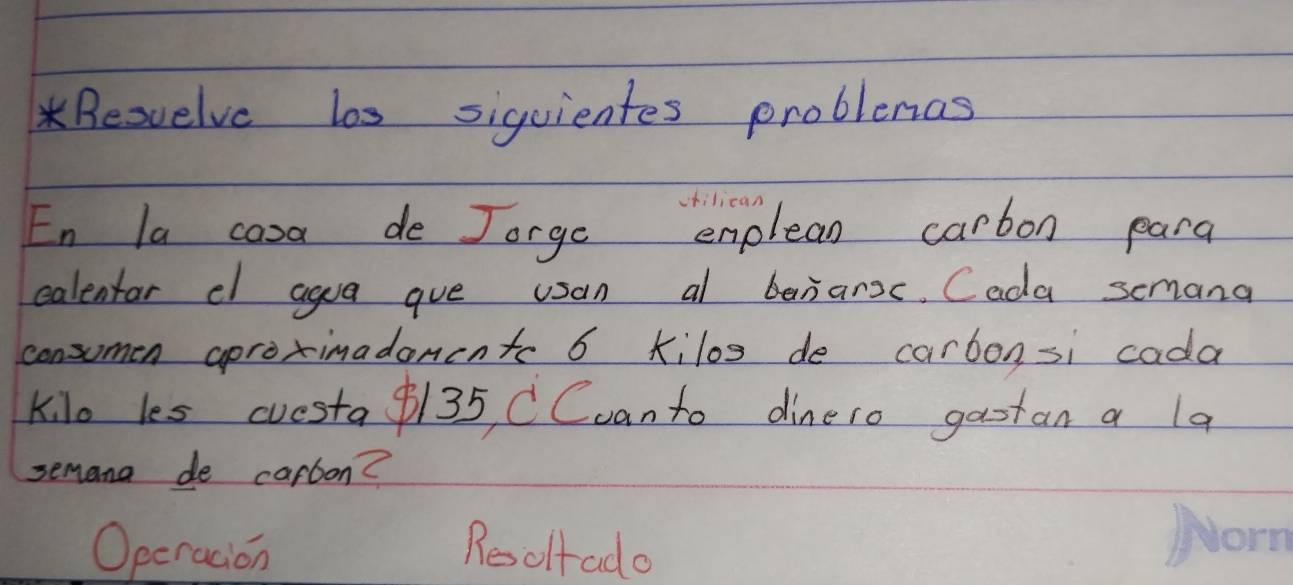 *Resuelve los siguientes problemas
utilican
En la casa de Jorge emplean carbon para
calentar el agua que usan al bañarse. Cada semana
consumen aproximadamente 6 Kilos de carbon, si cada
Kilo les cuesta $135, ¿Cuanto dinero gastan a la
semana de carbon?
Operación Resultado
Norm